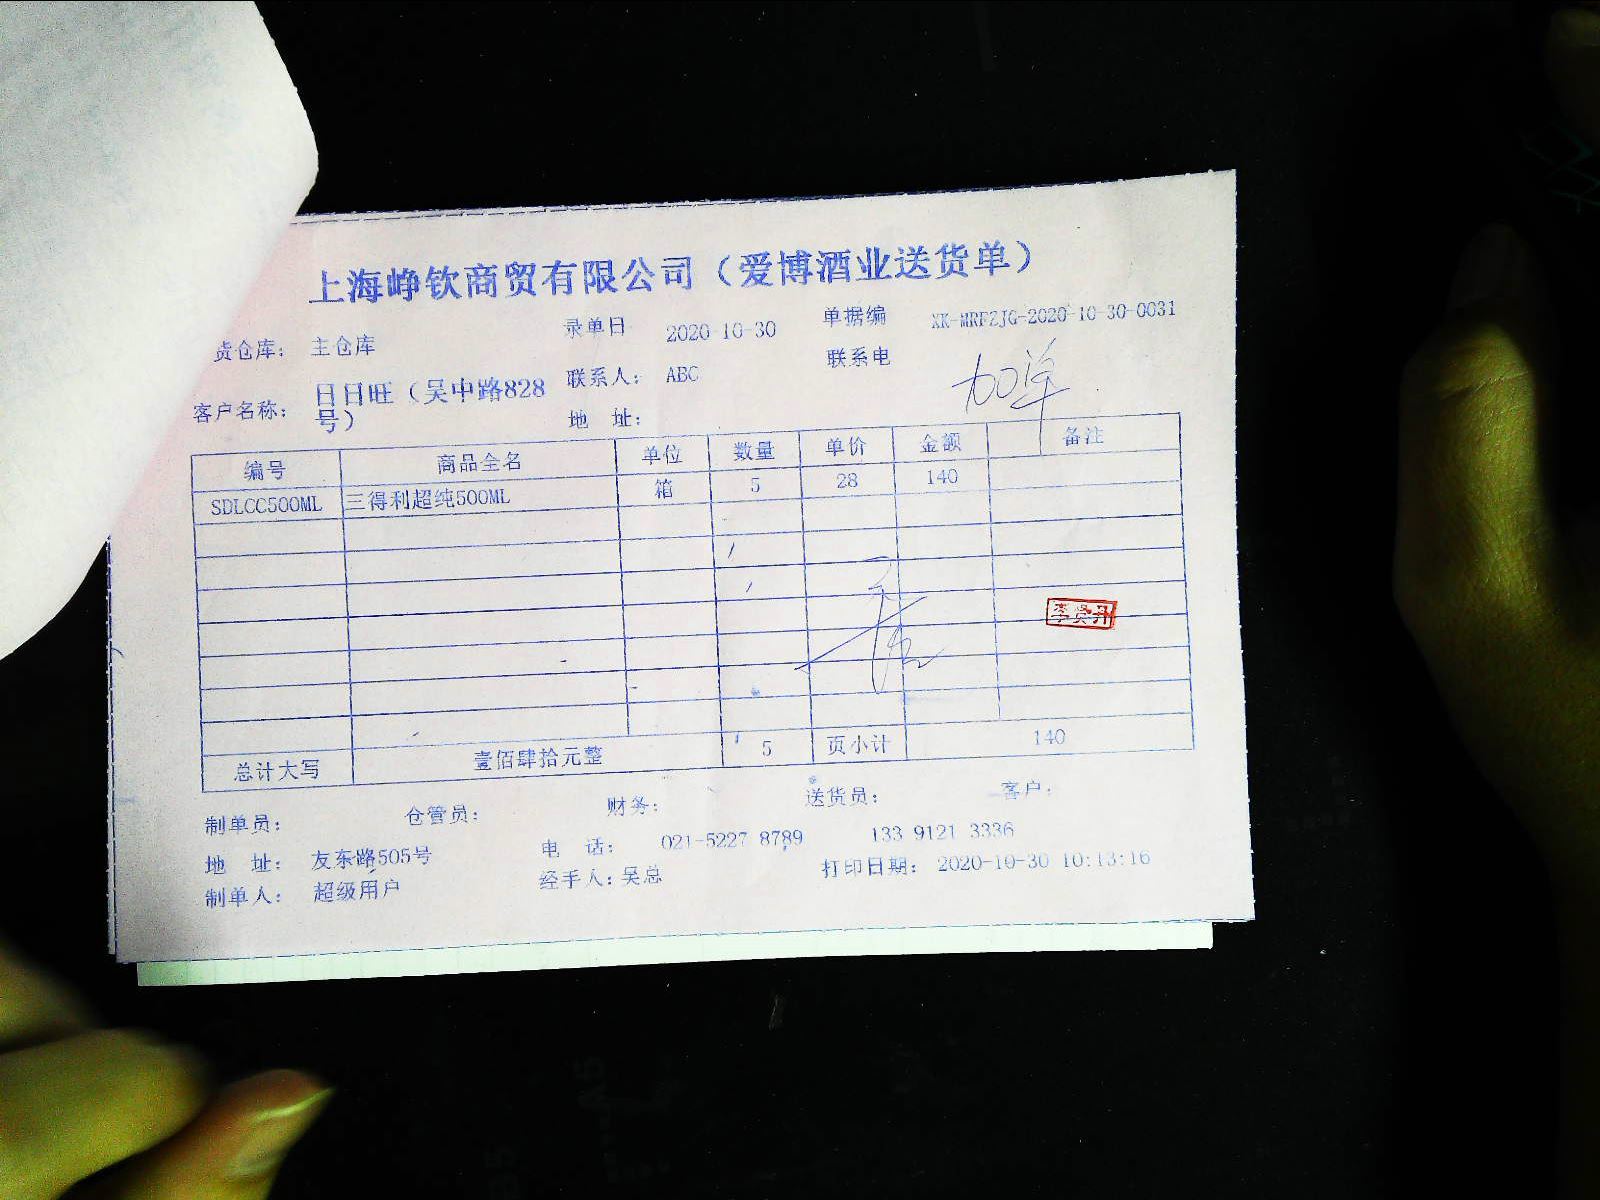 上海峥钦商贸有限公司（爱博酒业送货单）
货仓库： 主仓库 录单日 2020-10-30 单据编 XK-MRFZJG-2020-10-30-0031
客户名称： 日日旺（吴中路828号） 联系人： ABC 联系电
地 址：
加单
编号 商品全名 单位 数量 单价 金额 备注
SDLCC500ML 三得利超纯500ML 箱 5 28 140
李贤升
总计大写 壹佰肆拾元整 5 页小计 140
制单员： 仓管员： 财务： 送货员： 客户：
地 址： 友东路505号 电 话： 021-5227 8789 133 9121 3336
制单人： 超级用户 经手人：吴总 打印日期： 2020-10-30 10:13:16